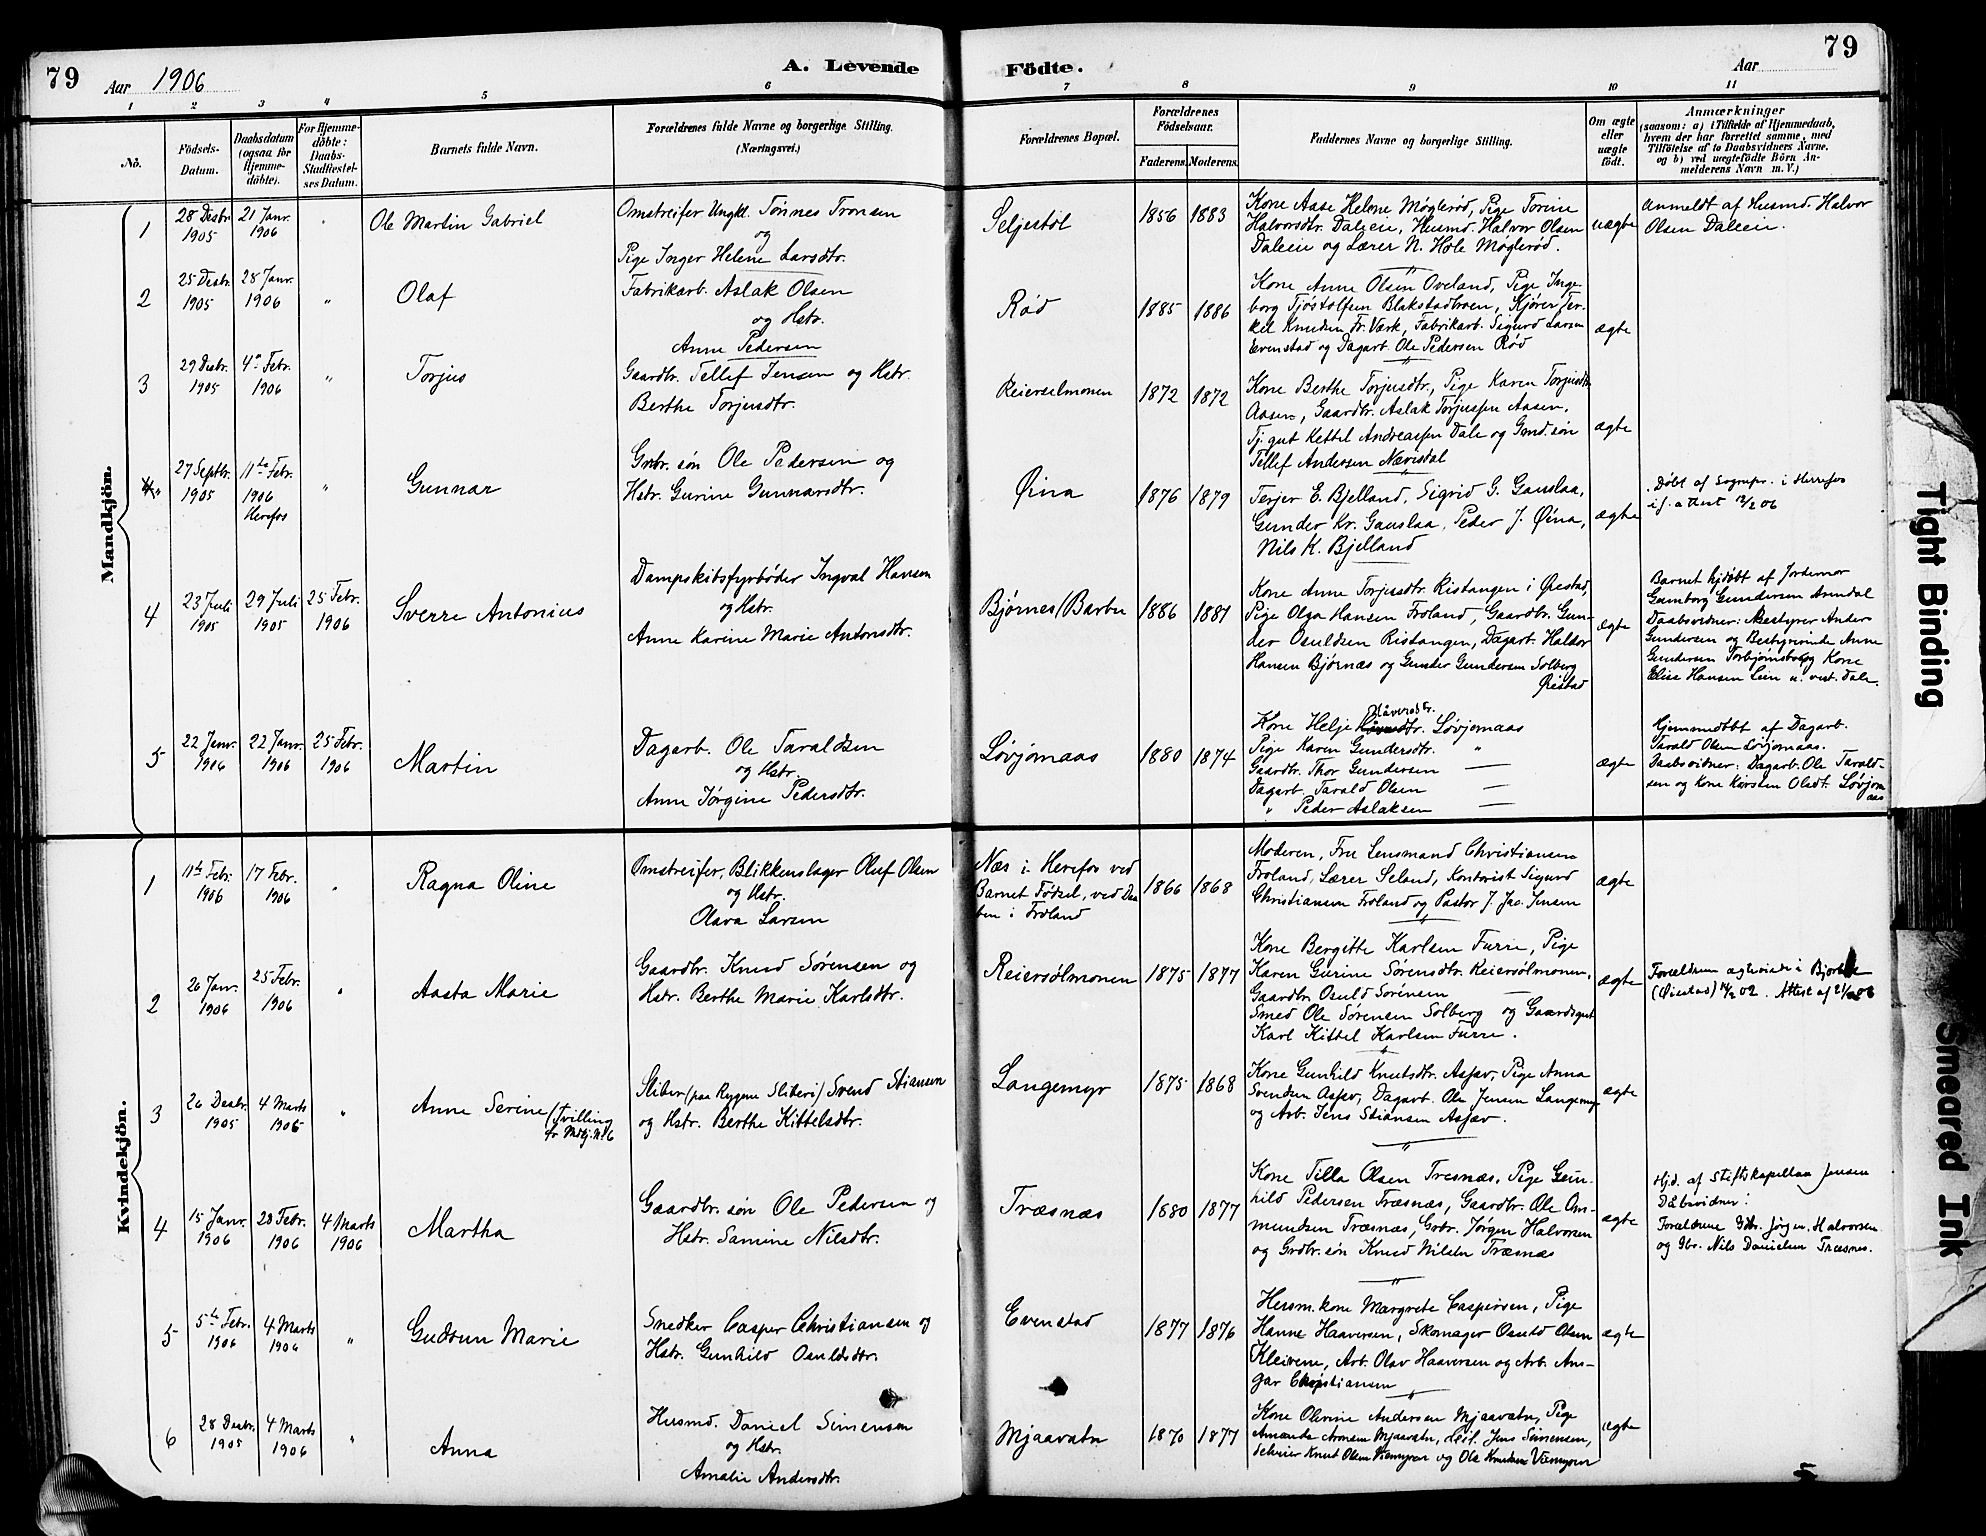 79
Aar 1906
A. Levende
Födte.
Aar
79
1 2 3 4 5 6 7 8 9 10 11
No.
Födsels-Datum.
Daabsdatum (ogsaa for Hjemme-döbte).
For Hjemme-döbte: Daabs-Stadfæstel-ses Datum.
Barnets fulde Navn.
Forældrenes fulde Navne og borgerlige Stilling. (Næringsvei.)
Forældrenes Bopæl.
Forældrenes Födselsaar.
Faderens. Moderens.
Faddernes Navne og borgerlige Stilling.
Om ægte eller uægte födt.
Anmærkninger
(saasom: a) i Tilfælde af Hjemmedaab, hvem der har forrettet samme, med Tilföielse af to Daabsvidners Navne. og b) ved uægtefödte Börn An-melderens Navn m. V.)
Mandkjön.
1
28 Desbr. 1905
21 Janr. 1906
Ole Martin Gabriel
Omstreifer Ungkl. Tønnes Tronsen
og
Pige Inger Helene Larsdtr.
Seljestøl
1856 1883
Kone Aase Helene Møglerød, Pige Torine
Halvorsdtr. Daleie, Husmd. Halvor Olsen
Daleie og Lærer N. Hole Møglerød.
uægte
Anmeldt af Husmd. Halvor
Olsen Daleie.
2
25 Desbr. 1905
28 Janr. 1906
"
Olaf
Fabrikarb. Aslak Olsen
og Hstr.
Anne Pedersen
Rød
1885 1886
Kone Anne Olsen Oveland, Pige Inge-
borg Tjøstolfsen Blakstadbroen, Kjører Ter-
kel Knudsen Fr. Værk, Fabrikarb. Sigurd Larsen
Evenstad og Dagarb. Ole Pedersen Rød
ægte
3
29 Desbr. 1905
4de Febr. 1906
"
Torjus
Gaardbr. Tellef Jensen og Hstr.
Berthe Torjusdtr.
Reierselmonen
1872 1872
Kone Berthe Torjusdtr, Pige Karen Torjusdtr.
Aasen, Gaardbr. Aslak Torjussen Aasen,
Tj. gut Kettel Andreassen Dale og Gmd. søn
Tellef Andersen Nævisdal
ægte
"
27 Septbr. 1905
11te Febr. 1906 Herefos
"
Gunnar
Grbr. søn Ole Pedersen og
Hstr. Gurine Gunnarsdtr.
Øina
1876 1879
Terjer E. Bjelland, Sigrid G. Gauslaa,
Gunder Kr. Gauslaa, Peder J. Øina,
Nils K. Bjelland
ægte
Døbt af Sognepr. i Herrefos
if. attest 12/2 06
4
23 Juli 1905
29 Juli 1905
25 Febr. 1906
Sverre Antonius
Dampskibsfyrbøder Ingval Hansen
og Hstr.
Anne Karine Marie Antonsdtr.
Bjørnes/Barbu
1886 1881
Kone Anne Torjusdtr. Ristangen i Øiestad,
Pige Olga Hansen Froland, Gaardbr. Gun-
der Osuldsen Ristangen, Dagarb. Haldor
Hansen Bjørnæs og Gunder Gundersen Solberg
Øiestad
ægte
Barnet hjdøbt af Jordemor
Gunborg Gundersen Arendal
Daabsvidner: Bestyrer Ander
Gundersen og Bestyrerinde Anne
Gundersen Torbjørnsbolig Kone
Elise Hansen Lien
5
22 Janr. 1906
22 Janr. 1906
25 Febr. 1906
Martin
Dagarb. Ole Taraldsen
og Hstr.
Anne Jørgine Pedersdtr.
Løvjomaas
1880 1874
Kone Helje Håversdtr. Løvjomaas
Pige Karen Gundersdtr. "
Gaardbr. Thor Gundersen —
Dagarb. Tarald Olsen —
" Peder Aslaksen —
ægte
Hjemmedøbt af Dagarb.
Tarald Olsen Løvjomaas.
Daabsvidner: Dagarb. Ole Tarald-
sen og Kone Kirsten Olsdt. Løvjom
aas
Kvindekjön.
1
11te Febr. 1906
17 Febr. 1906
"
Ragna Oline
Omstreifer, Blikkenslager Oluf Olsen
og Hstr.
Olava Larsen
Næs i Herefos ved
Barnet Fødsel, ved Daa-
ben i Froland
1866 1868
Moderen, Fru Lensmand Christiansen
Froland, Lærer Seland, Kontorist Sigurd
Christiansen Froland og Pastor J. Jac. Jensen
ægte
2
26 Janr. 1906
25 Febr. 1906
"
Aasta Marie
Gaardbr. Knud Sørensen og
Hstr. Berthe Marie Karlsdtr.
Reiersølmonen
1875 1877
Kone Bergitte Karlsen Furre, Pige
Karen Gurine Sørensdtr. Reiersølmonen,
Gaardbr. Osuld Sørensen —
Smed Ole Sørensen Solberg og Gaardsgut
Karl Kittel Karlsen Furre.
ægte
Forældrene ægteviede i
(Øiestad) 02. Attest af
3
26 Desbr. 1905
4 Marts 1906
"
Anne Serine (Tvilling
fr Mdkj. № 6
Sliber (paa Rygene Sliberi) Svend Stiansen
og Hstr. Berthe Kittelsdtr.
Langemyr
1875 1868
Kone Gunhild Knutsdtr. Assæv, Pige Anna
Svendsen Assæv, Dagarb. Ole Jensen Langemyr
og Arb. Jens Stiansen Assæv.
ægte
4
15 Janr. 1906
20 Febr. 1906
4 Marts 1906
Martha
Gaardbr. søn Ole Pedersen og
Hstr. Samine Nilsdtr.
Træsnæs
1880 1877
Kone Tilla Olsen Træsnæs, Pige Gun-
hild Pedersen Træsnæs, Gaardbr. Ole Os-
mundsen Træsnæs, Grbr. Jørgen Halvorsen
og Grdbr. søn Knud Nilsen Træsnæs
ægte
Hjd. af Stiftskapellan Jensen
Dåbsvidner:
Forældrene Gbr. Jørgen Halvorsen
og Gbr. Nils Danielsen Træsnes.
5
5te Febr. 1906
4 Marts 1906
"
Gudrun Marie
Snedker Casper Christiansen og
Hstr. Gunhild Osuldsdtr.
Evenstad
1877 1876
Husm.kone Margrete Caspersen, Pige
Hanne Haaversen, Skomager Osuld Olsen
Kleivene, Arb. Olav Haaversen og Arb. Ans-
gar Christiansen
ægte
6
28 Desbr. 1905
4 Marts 1906
"
Anna
Husmd. Daniel Simensen
og Hstr.
Amalie Andersdtr.
Mjaavatn
1870 1877
Kone Olevine Andersen Mjaavatn, Pige
Amanda Aronsen Mjaavatn, Jens Simensen,
Knut Olsen Viemyren og Ole Knudsen Viemyren
ægte
5
Tight Binding
Smeared Ink